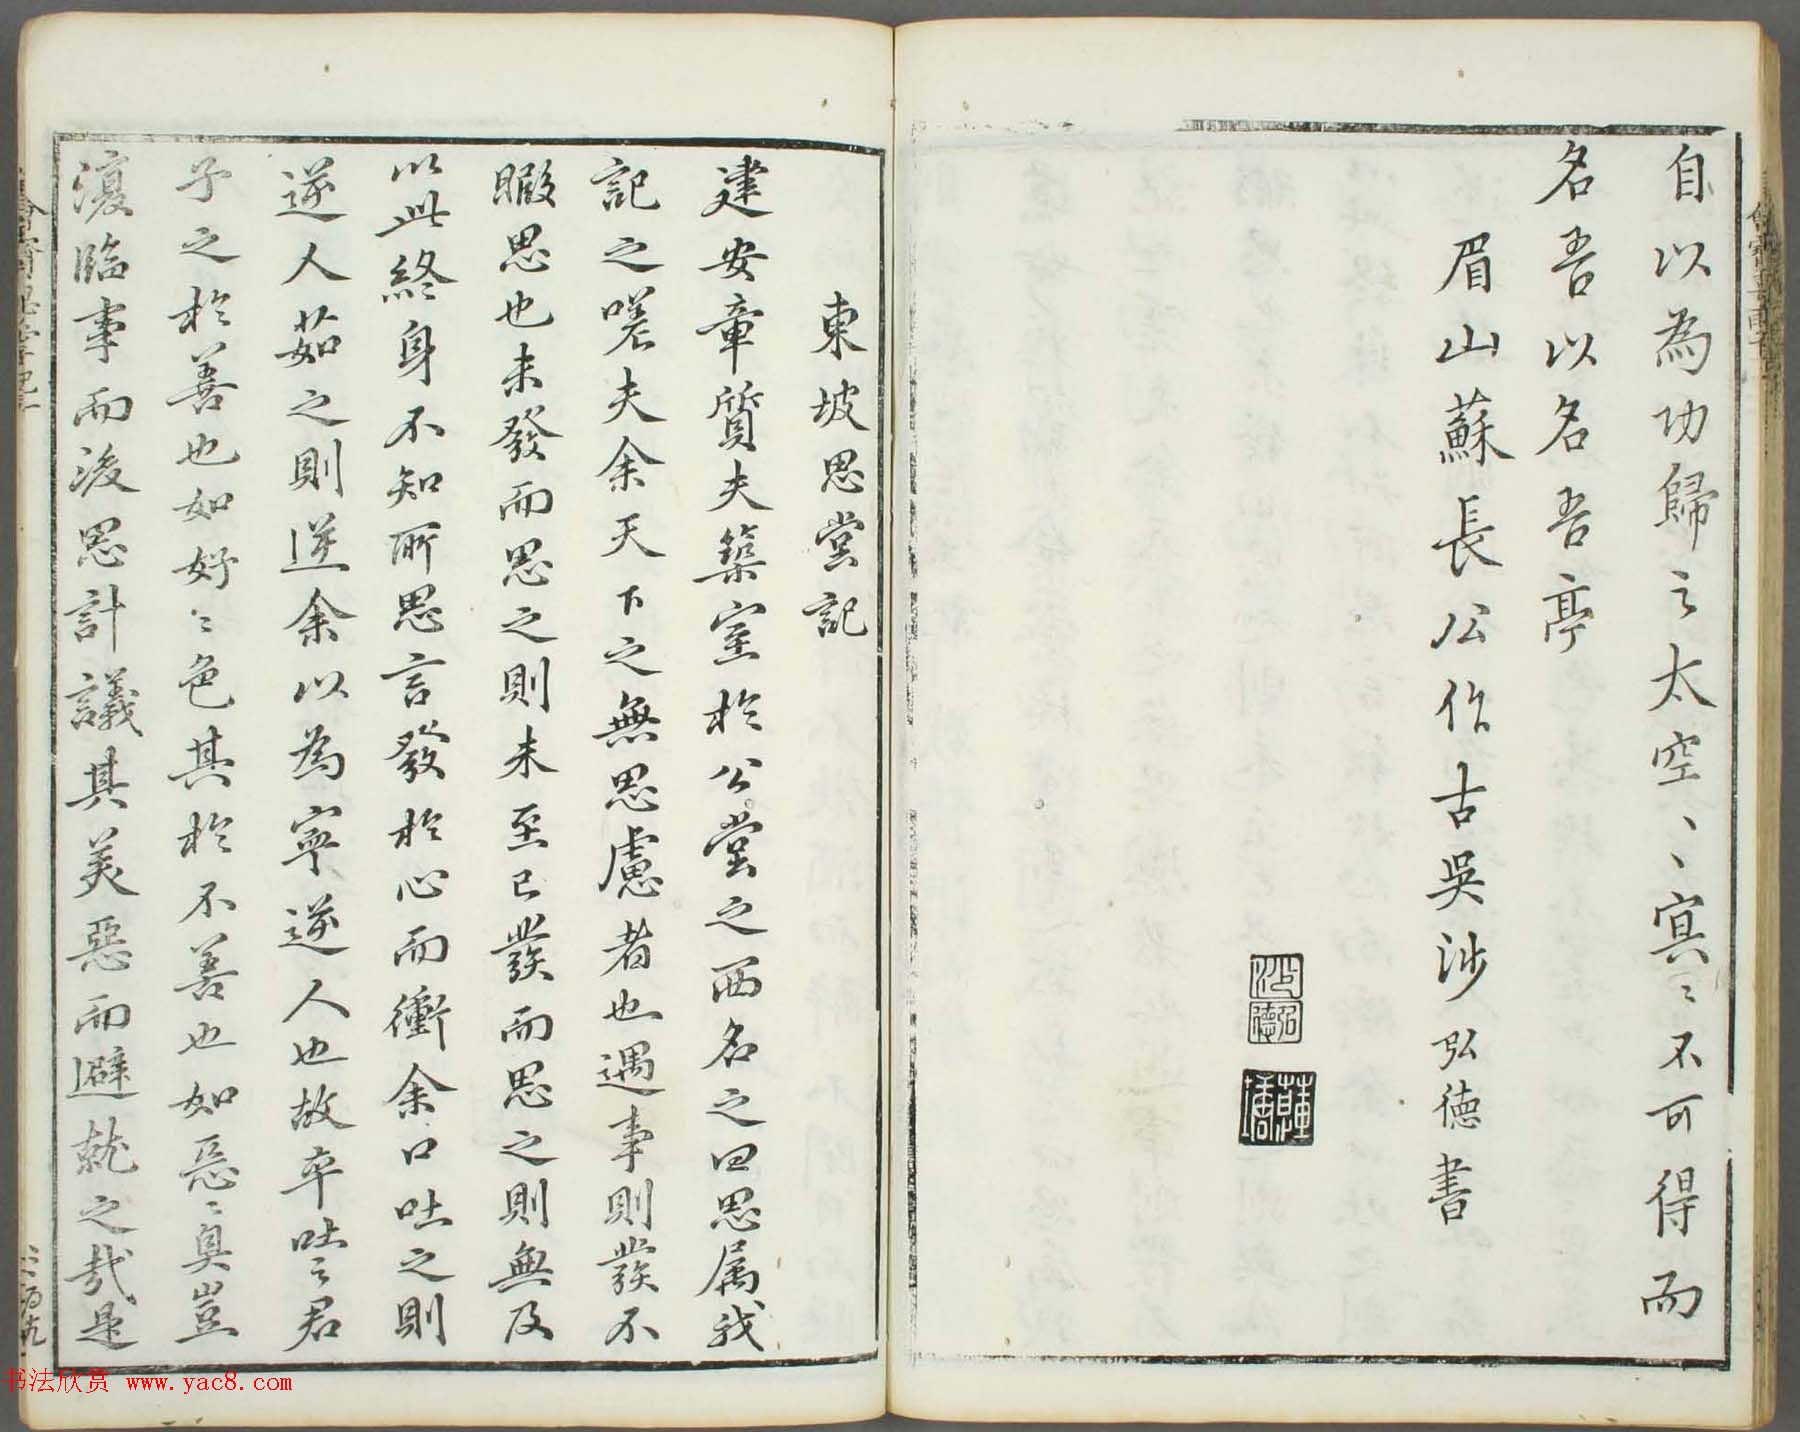 自以為功歸之太空、、冥〻不可得而
名吾以名吾亭
眉山蘇長公作古吳沙弘德書
東坡思堂記
建安章質夫築室於公堂之西名之曰思属我
記之嗟夫余天下之無思慮者也遇事則發不
暇思也未發而思之則未至已發而思之則無及
以此終身不知所思言發於心而衝余口吐之則
逆人茹之則逆余以為寧逆人也故卒吐之君
子之於善也如好〻色其於不善也如惡〻臭豈
復臨事而後思計議其美惡而避就之哉是
书法欣赏 www.yac8.com